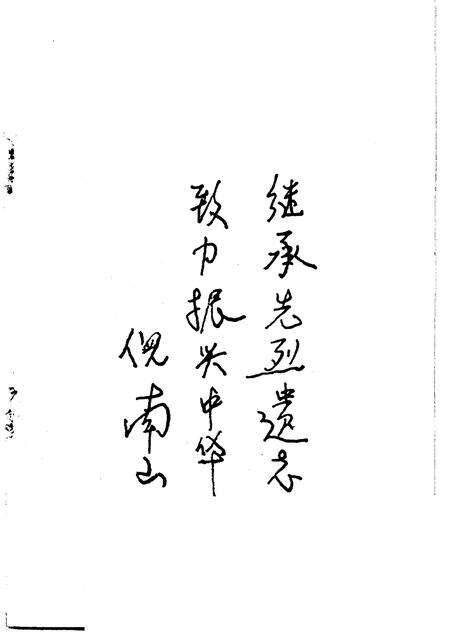 继承先烈遗志
致力振兴中华
倪南山